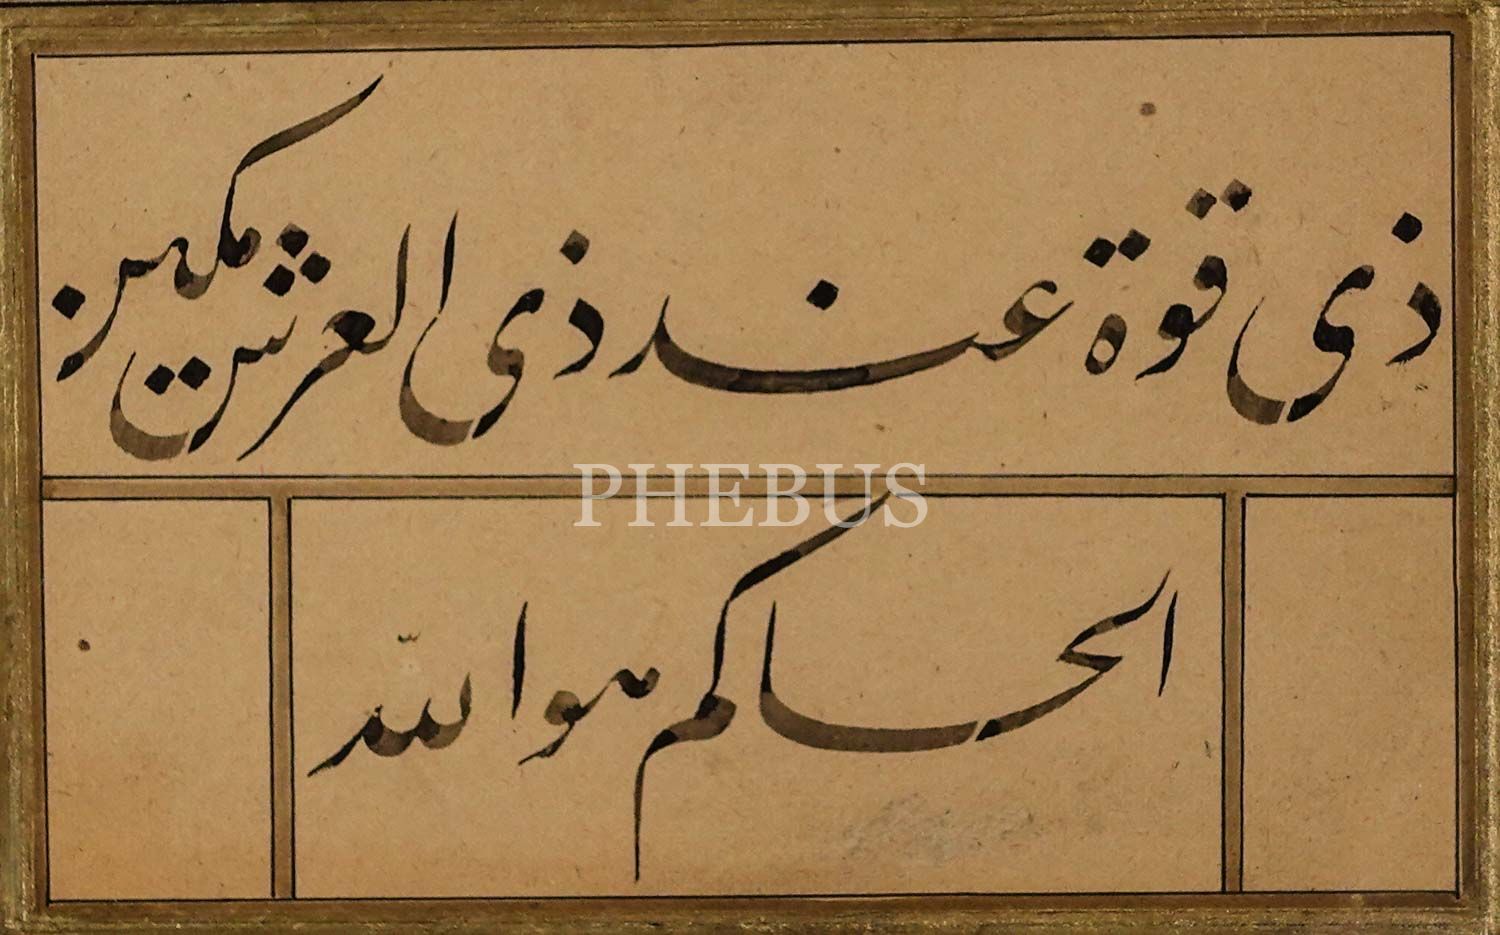 ذی قوة عند ذی العرش مكين
PHEBUS
الحاكم هو الله